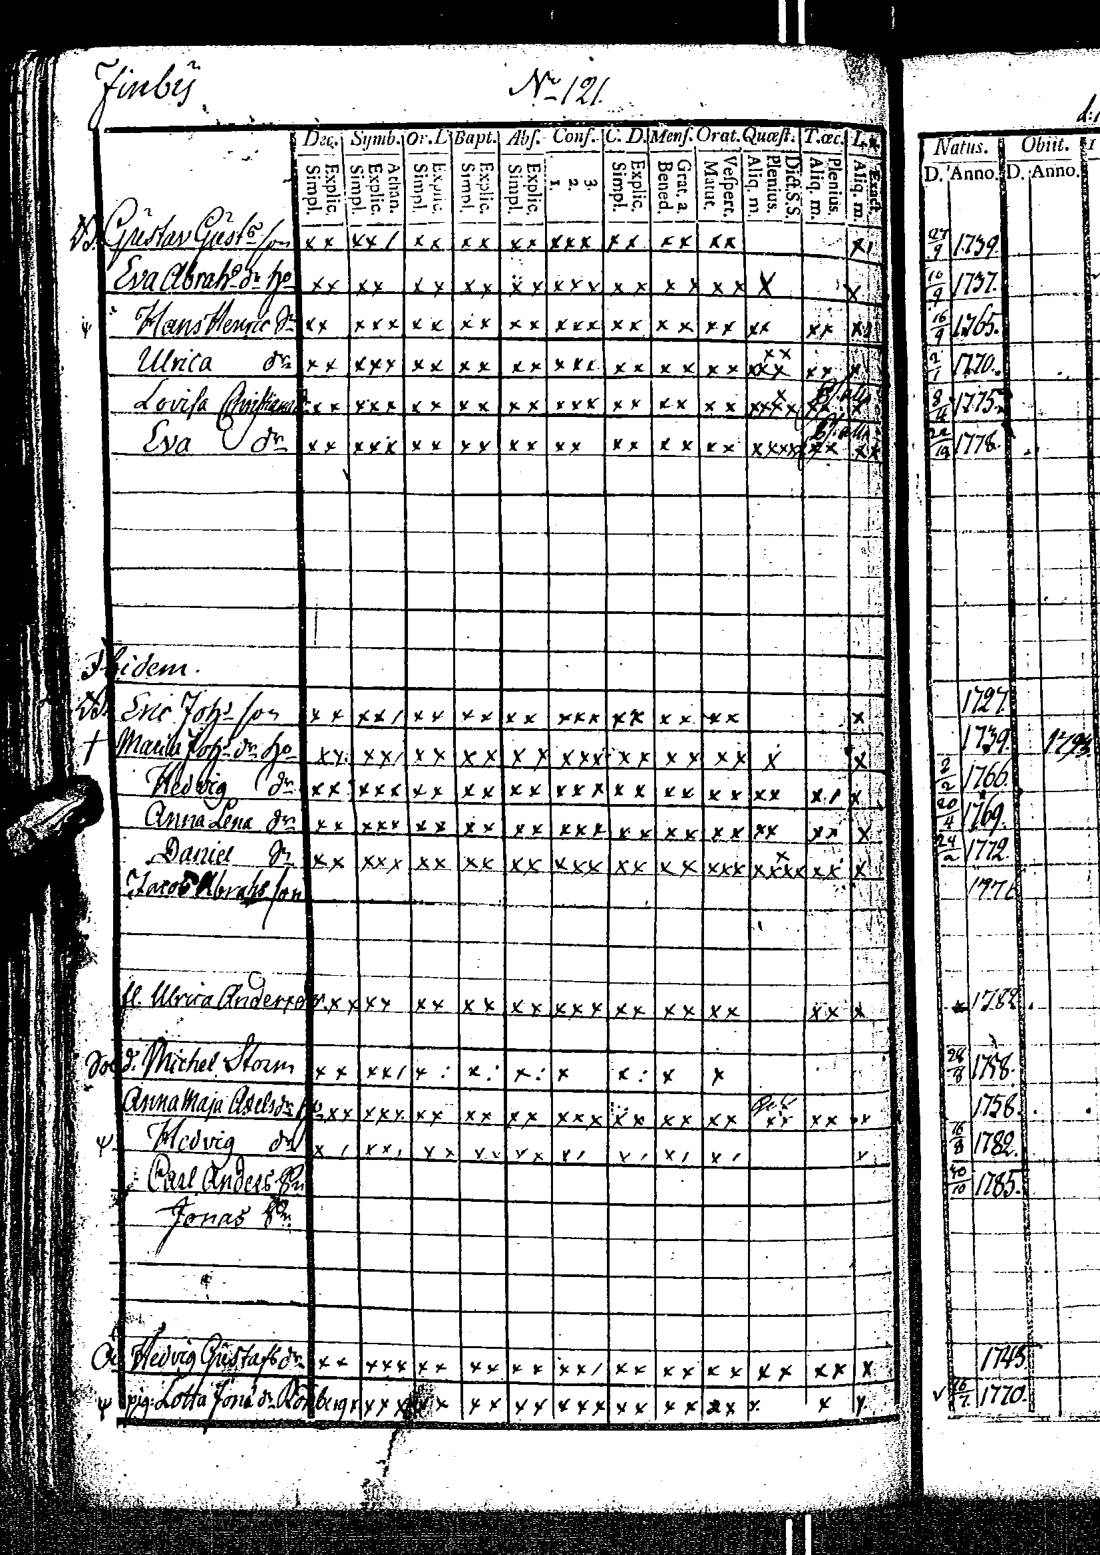 Finby N:o 121.
Dec. Symb. Or. D Bapt. Abs. Conf. C. D. Mens. Orat. Quæst. T. œc. Natus. Obiit.
Simpl. Explic. Simpl. Explic. Athan. Simpl. Explic. Simpl. Explic. Simpl. Explic. 1. 2. 3. Simpl. Explic. Bened. Grat. a. Matut. Vespert. Aliq. m. Plenius. Dict. S.S. Aliq. m. Plenius. Aliq. m. Exact. D. Anno. D. Anno.
Gustav Gusts son x x x x / x x x x x x x x x x x x x x x x / 27/9 1739.
Eva Abrah: dr hu x x x x x x x x x x x x x x x x x x x x x 10/9 1737.
Hans Henric x x x x x x x x x x x x x x x x x x x x x x x x x 16/9 1765.
Ulrica dr x x x x x x x x x x x x x x x x x x x x x x x x x x x x 2/1 1770.
Lovisa Christiana x x x x x x x x x x x x x x x x x x x x x x x x x 8/4 1775.
Eva dr x x x x x x x x x x x x x x x x x x x x x x x x x x x x 1778.
Ibidem.
Eric Johs son x x x x / x x x x x x x x x x x x x x x x 1727
† Maria Johs dr hu x x x x / x x x x x x x x x x x x x x x x x 1739. 1793
Hedvig dr x x x x x x x x x x x x x x x x x x x x x x x x x 2/2 1766
Anna Lena dr x x x x x x x x x x x x x x x x x x x x x x x x x x 20/4 1769.
Daniel x x x x x x x x x x x x x x x x x x x x x x x x x x x x x 1772
Jacob Abrahs son 1776
Ulrica Anders x x x x x x x x x x x x x x x x x x x x x x 1782.
Michel Storm x x x x / x : x : x : x x : x x 28/8 1758.
Anna Maja Axels dr hu x x x x x x x x x x x x x x x x x x x x x x x x x 1758.
Hedvig dr x / x x / x x x x x x x / x / x / x / x 16/8 1782.
Carl Anders 30/10 1785.
Jonas
Hedvig Gustafs dr x x x x x x x x x x x x x / x x x x x x x x x x x 1745
pig. Lotta Jons dr Rönberg x x x x x x x x x x x x x x x x x x x x x x 16/7 1770.